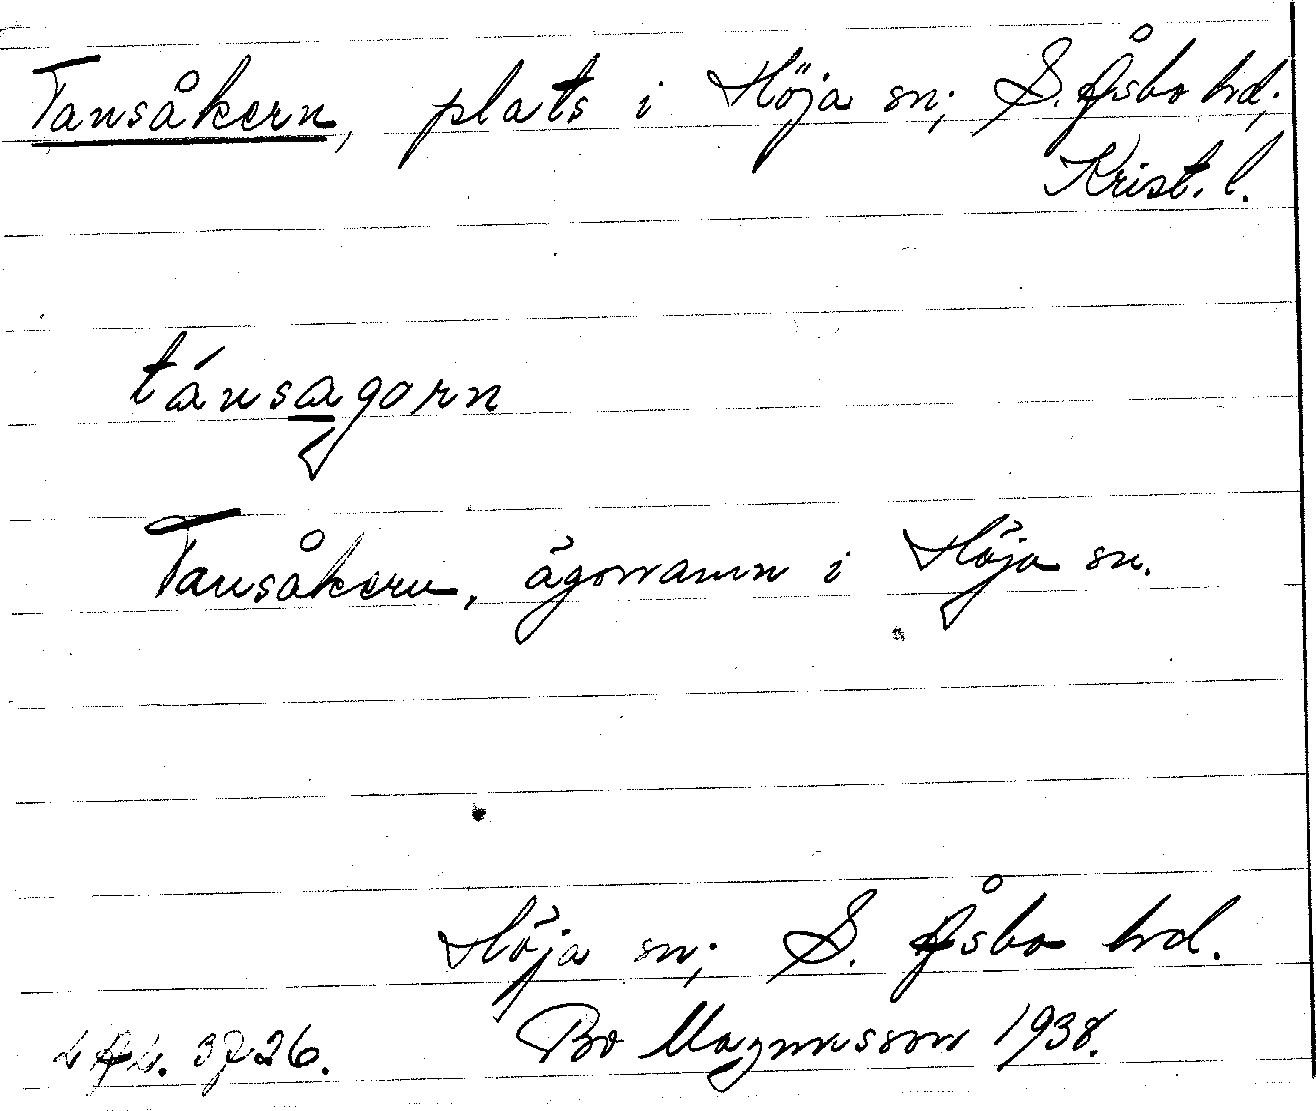 Tansåkern, plats i Höja sn; S. Åsbo hd;
Krist. l.
tánsagorn
Tansåkern, ägonamn i Höja sn.
Höja sn; S. Åsbo hd.
Bo Magnusson 1938.